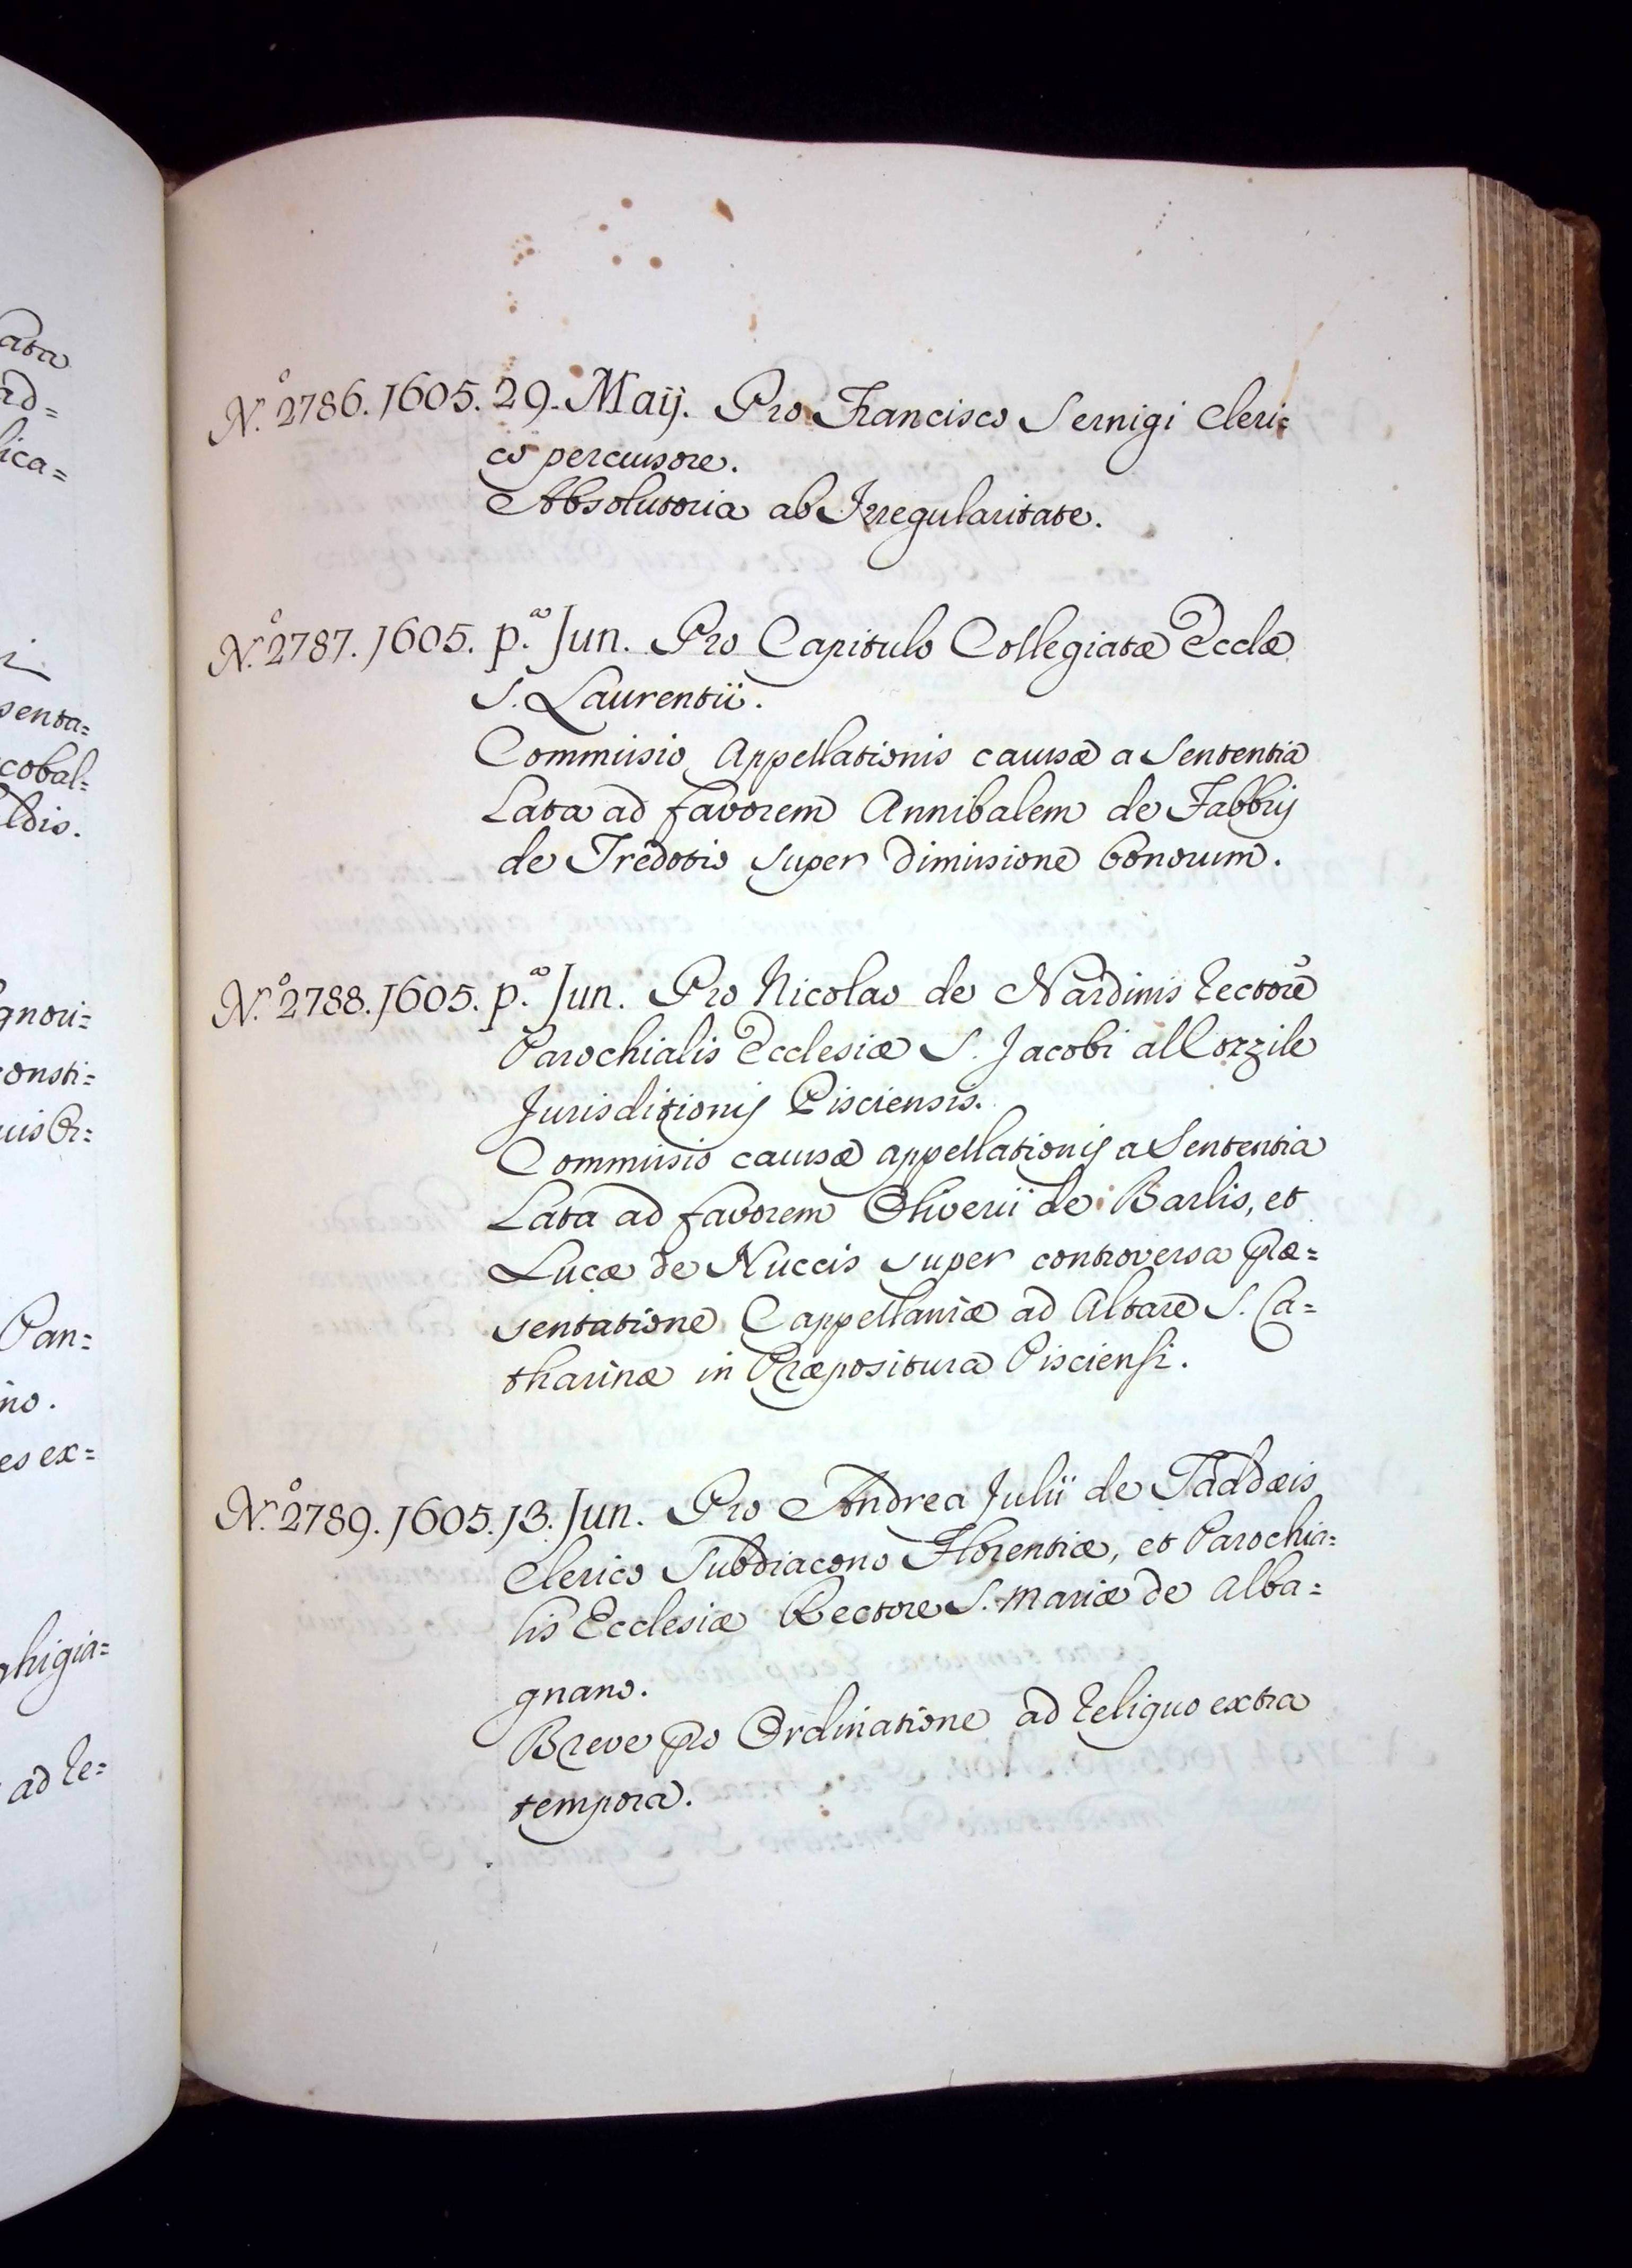 ata
ad=
lica=
senta=
cobal=
ldis.
gnori=
consti=
Pan=
ino.
es ex=
ghigia=
ad Re=
N.º 2786. 1605. 29. Maij. Pro Francisco Sernigi Cleri=
co percussore.
Absolutoria ab Irregularitate.
N.º 2787. 1605. p.ª Jun. Pro Capitulo Collegiatæ Ecclæ
S. Laurentii.
Commissio Appellationis causæ a Sententia
Lata ad favorem Annibalem de Fabbrij
de Tredotio super dimissione bonorum.
N.º 2788. 1605. p.ª Jun. Pro Nicolao de Nardinis Rectore
Parochialis Ecclesiæ S. Jacobi
Jurisditionis Pisciensis.
Commissio causæ appellationis a Sententia
Lata ad favorem Oliverii de Barlis, et
Lucæ de Nuccis super controversa præ=
sentatione Cappellaniæ ad Altare S. Ca=
tharinæ in Præpositura Pisciensi.
N.º 2789. 1605. 13. Jun. Pro Andrea Julii de Taddæis
Clerico Subdiacono Florentiæ, et Parochia=
lis Ecclesiæ Rectore S. Mariæ de Alba=
gnano.
Breve pro Ordinatione ad Reliquo extra
tempora.